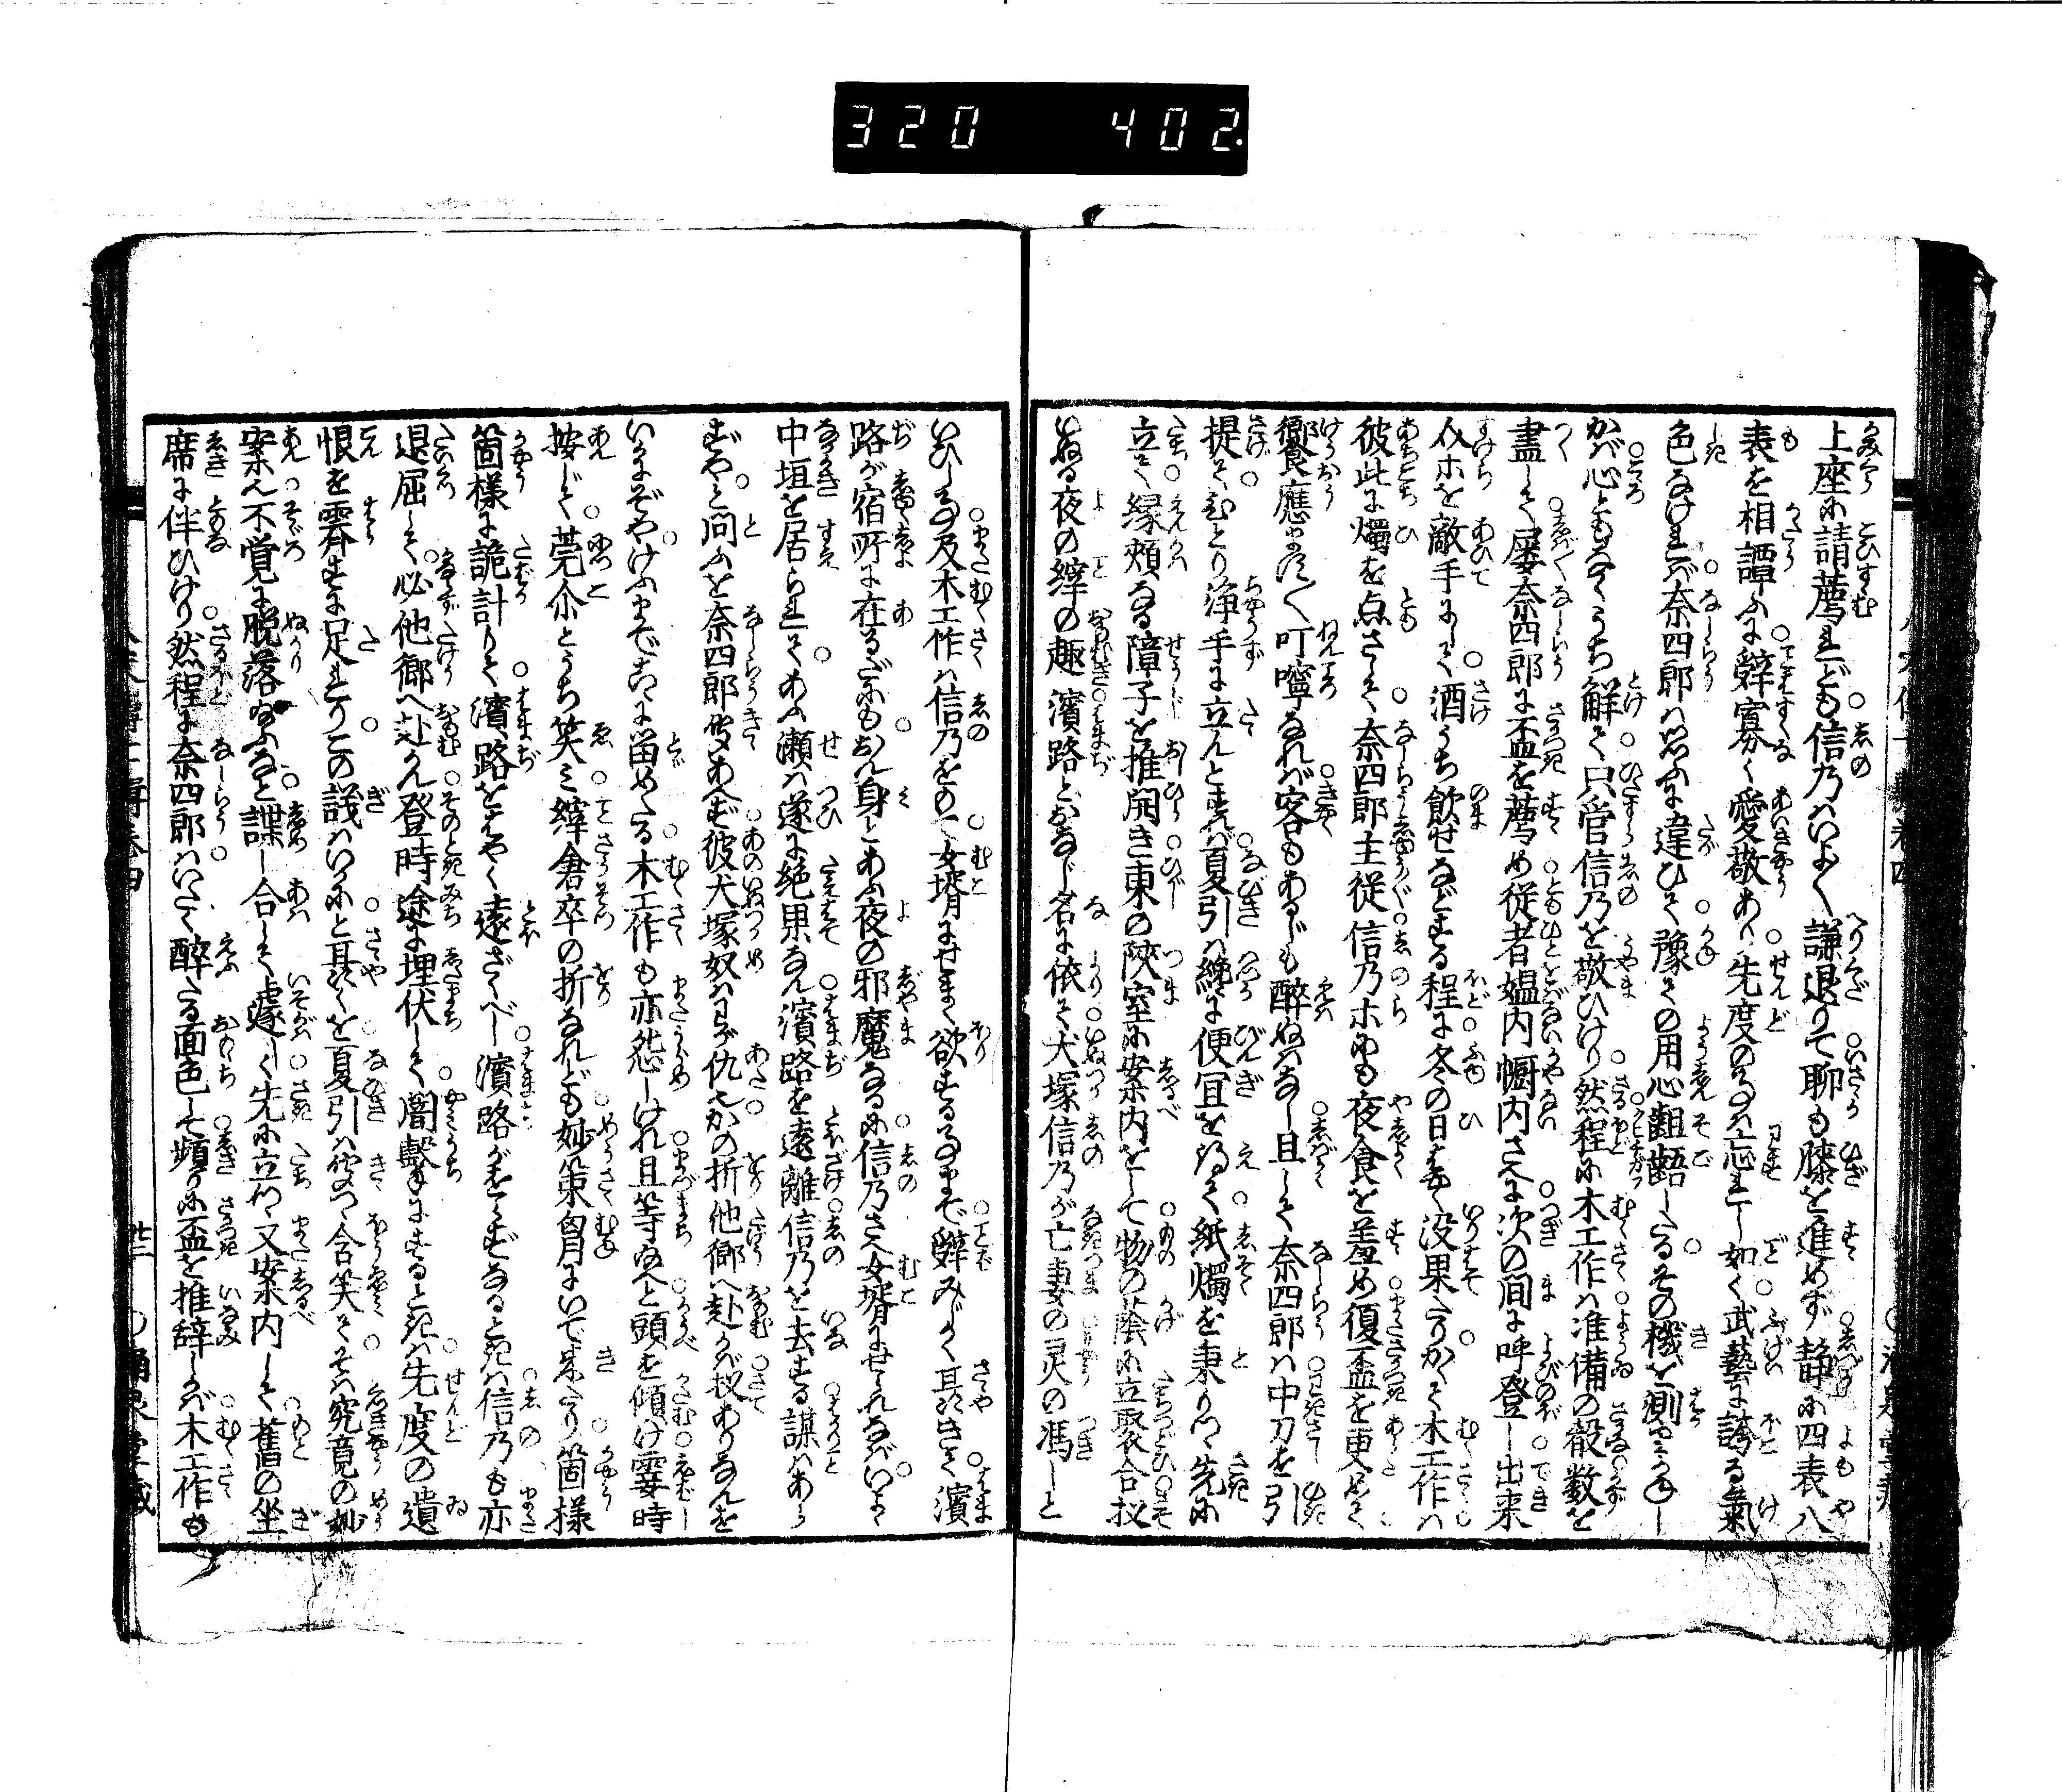 320 402.
上座に請薦れども信乃はいよ〳〵謙退りて聊も膝を進めず静に四表八
表を相譚ふに辞寡く愛敬あり先度の事は忘れし如く武藝に誇る氣
色なければ奈四郎は思ふに違ひて豫ての用心齟齬したるその機を測りかねし
かば心ともなくうち解て只管信乃を敬ひけり然程に木工作は准備の殽数を
盡して屡奈四郎に盃を薦め従者媼内幮内さへに次の間に呼登し出来
介ホを敵手にして酒うち飲せなどする程に冬の日はやく没果たりかくて木工作は
彼此に燭を点さして奈四郎主従信乃ホにも夜食を羞め復盃を更めて
饗應ます〳〵叮嚀なれば客もあるじも醉ぬはなし且して奈四郎は中刀を引
提てひとり浄手に立んとすれば夏引は纔に便宜を得て紙燭を秉りつゝ先に
立て縁頬なる障子を推開き東の陝室に案内をして物の蔭に立聚合扠
いぬる夜の縡の趣濱路とおなじ名に依て犬塚信乃が亡妻の灵の馮しと
いひし事及木工作は信乃をのみ女壻にせまく欲する事まで辞みじかく耳語きて濱
路が宿所に在るだにもおん身とあふ夜の邪魔なるに信乃さへ女壻にせられなばいよゝ
中垣を居られてあふ瀬は遂に絶果なん濱路を遠離信乃を去する謀はあら
ずやと問ふを奈四郎聞あへず彼犬塚奴はわが仇也かの折他郷へ赴かば扠ありなんを
いかにぞやけふまでこゝに留めたる木工作も亦怨しけれ且等給へと頭を傾け霎時
按じて莞尒とうち笑み縡倉卒の折なれども妙策胷にいで来たり箇様
箇様に詭計りて濱路をはやく遠ざくべし濱路がをらずなるときは信乃も亦
退屈して必他郷へ赴かん登時途に埋伏して闇撃にするときは先度の遺
恨を雪むるに足れりこの議はいかにと耳語くを夏引は聞つゝ含笑てそは究竟の妙
案ん不覚に脱落給ふなと諜し合して遽しく先に立つゝ又案内して舊の坐
席に伴ひけり然程に奈四郎はいたく醉たる面色して頻りに盃を推辞しかば木工作も